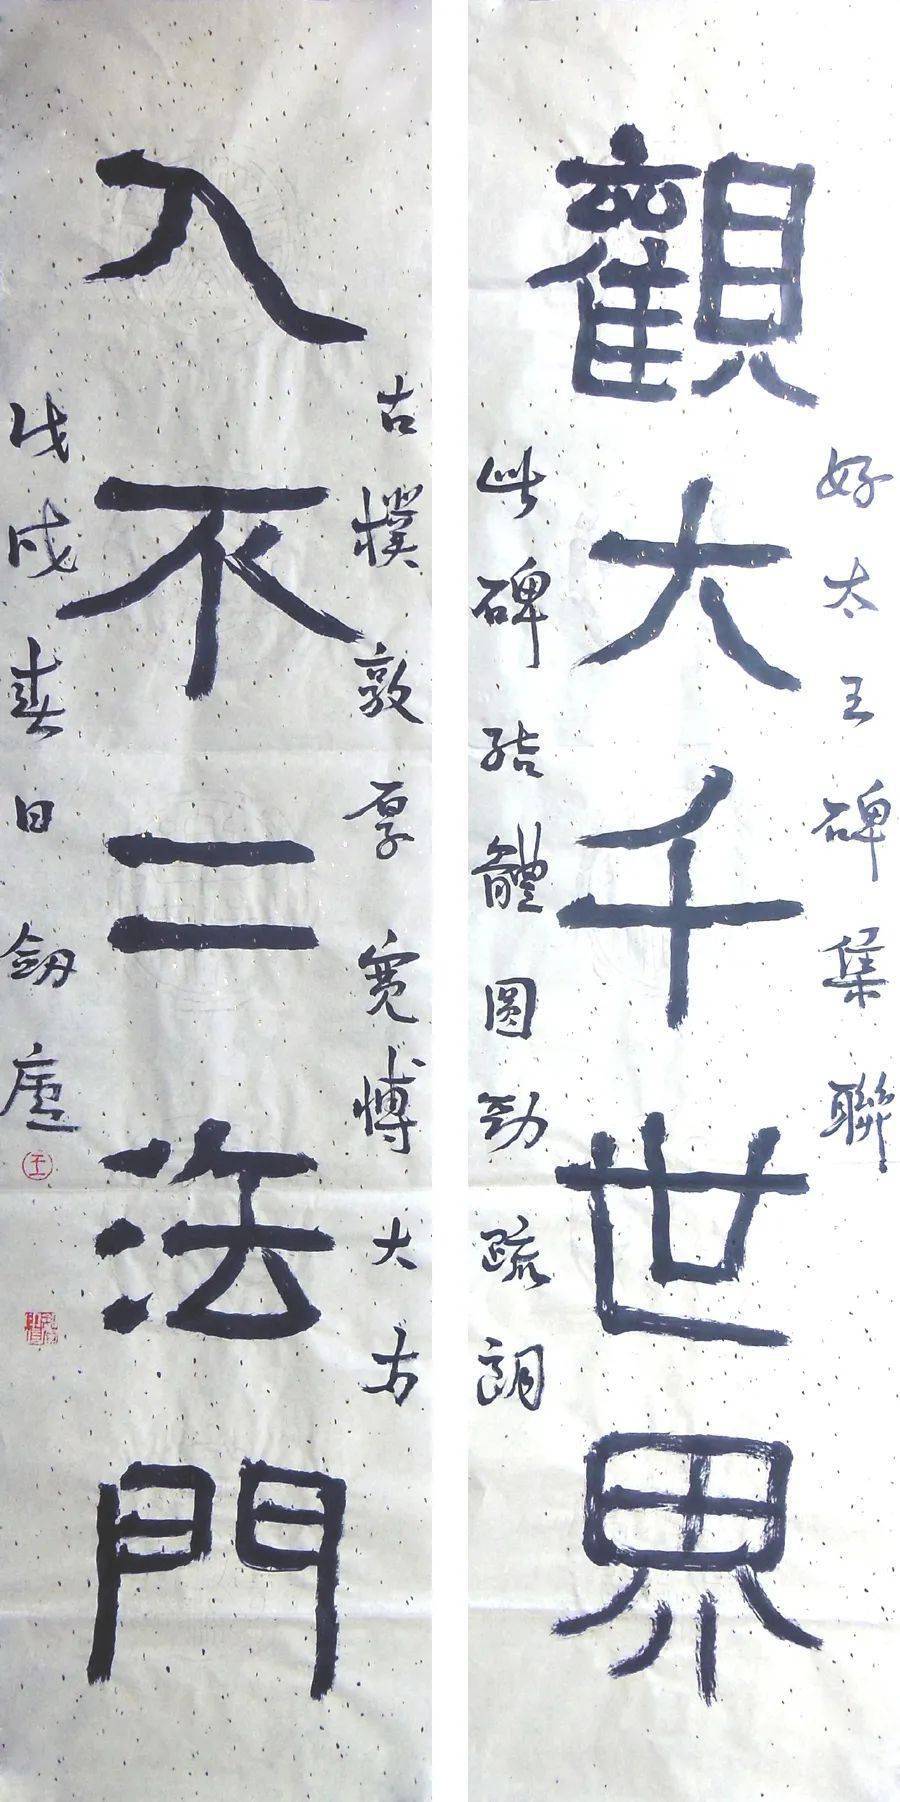 觀大千世界
好太王碑集聯
此碑結體圓勁疏朗
入不二法門
古樸敦厚寬博大方
戊戌春日劒廬
王